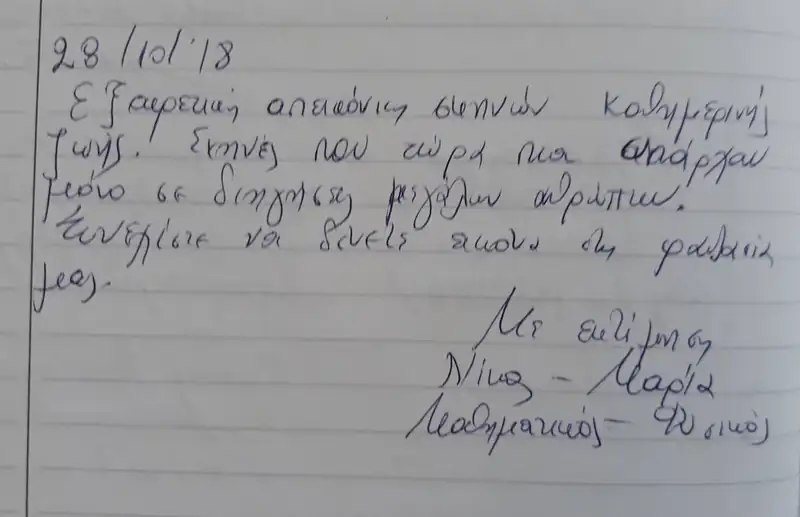 28/10/'18
Εξαιρετική απεικόνιση σκηνών καθημερινής
ζωής. Σκηνές που τώρα πια υπάρχουν
μόνο σε διηγήσεις μεγάλων ανθρώπων.
Συνεχίστε να δίνετε εικόνα στη φαντασία
μας.
Με εκτίμηση
Νίκος - Μαρία
Μαθηματικός - Φυσικός